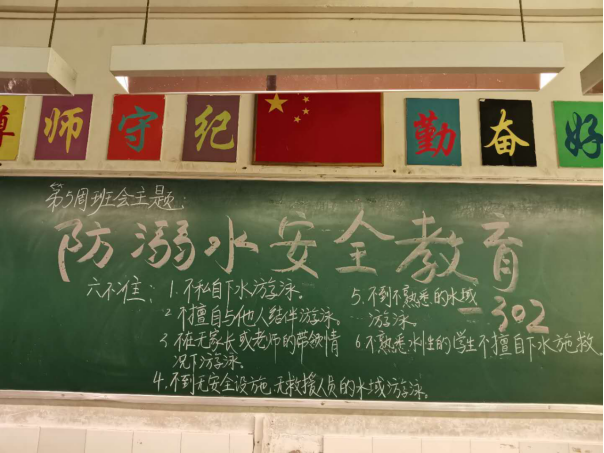 尊师守纪 勤奋好
第5周班会主题:
防溺水安全教育
-302
六不准: 1.不私自下水游泳。
2.不擅自与他人结伴游泳。
3.在无家长或老师的带领情
况下游泳。
4.不到无安全设施、无救援人员的水域游泳。
5.不到不熟悉的水域
游泳。
6.不熟悉水性的学生不擅自下水施救。